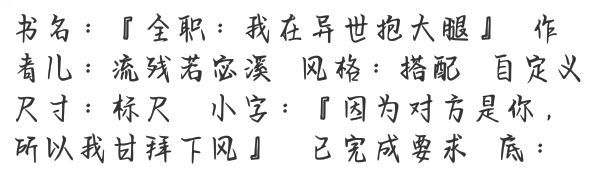 书名：『全职：我在异世抱大腿』 作
者儿：流残若宓溪 风格：搭配 自定义
尺寸：标尺 小字：『因为对方是你，
所以我甘拜下风』 已完成要求 底：